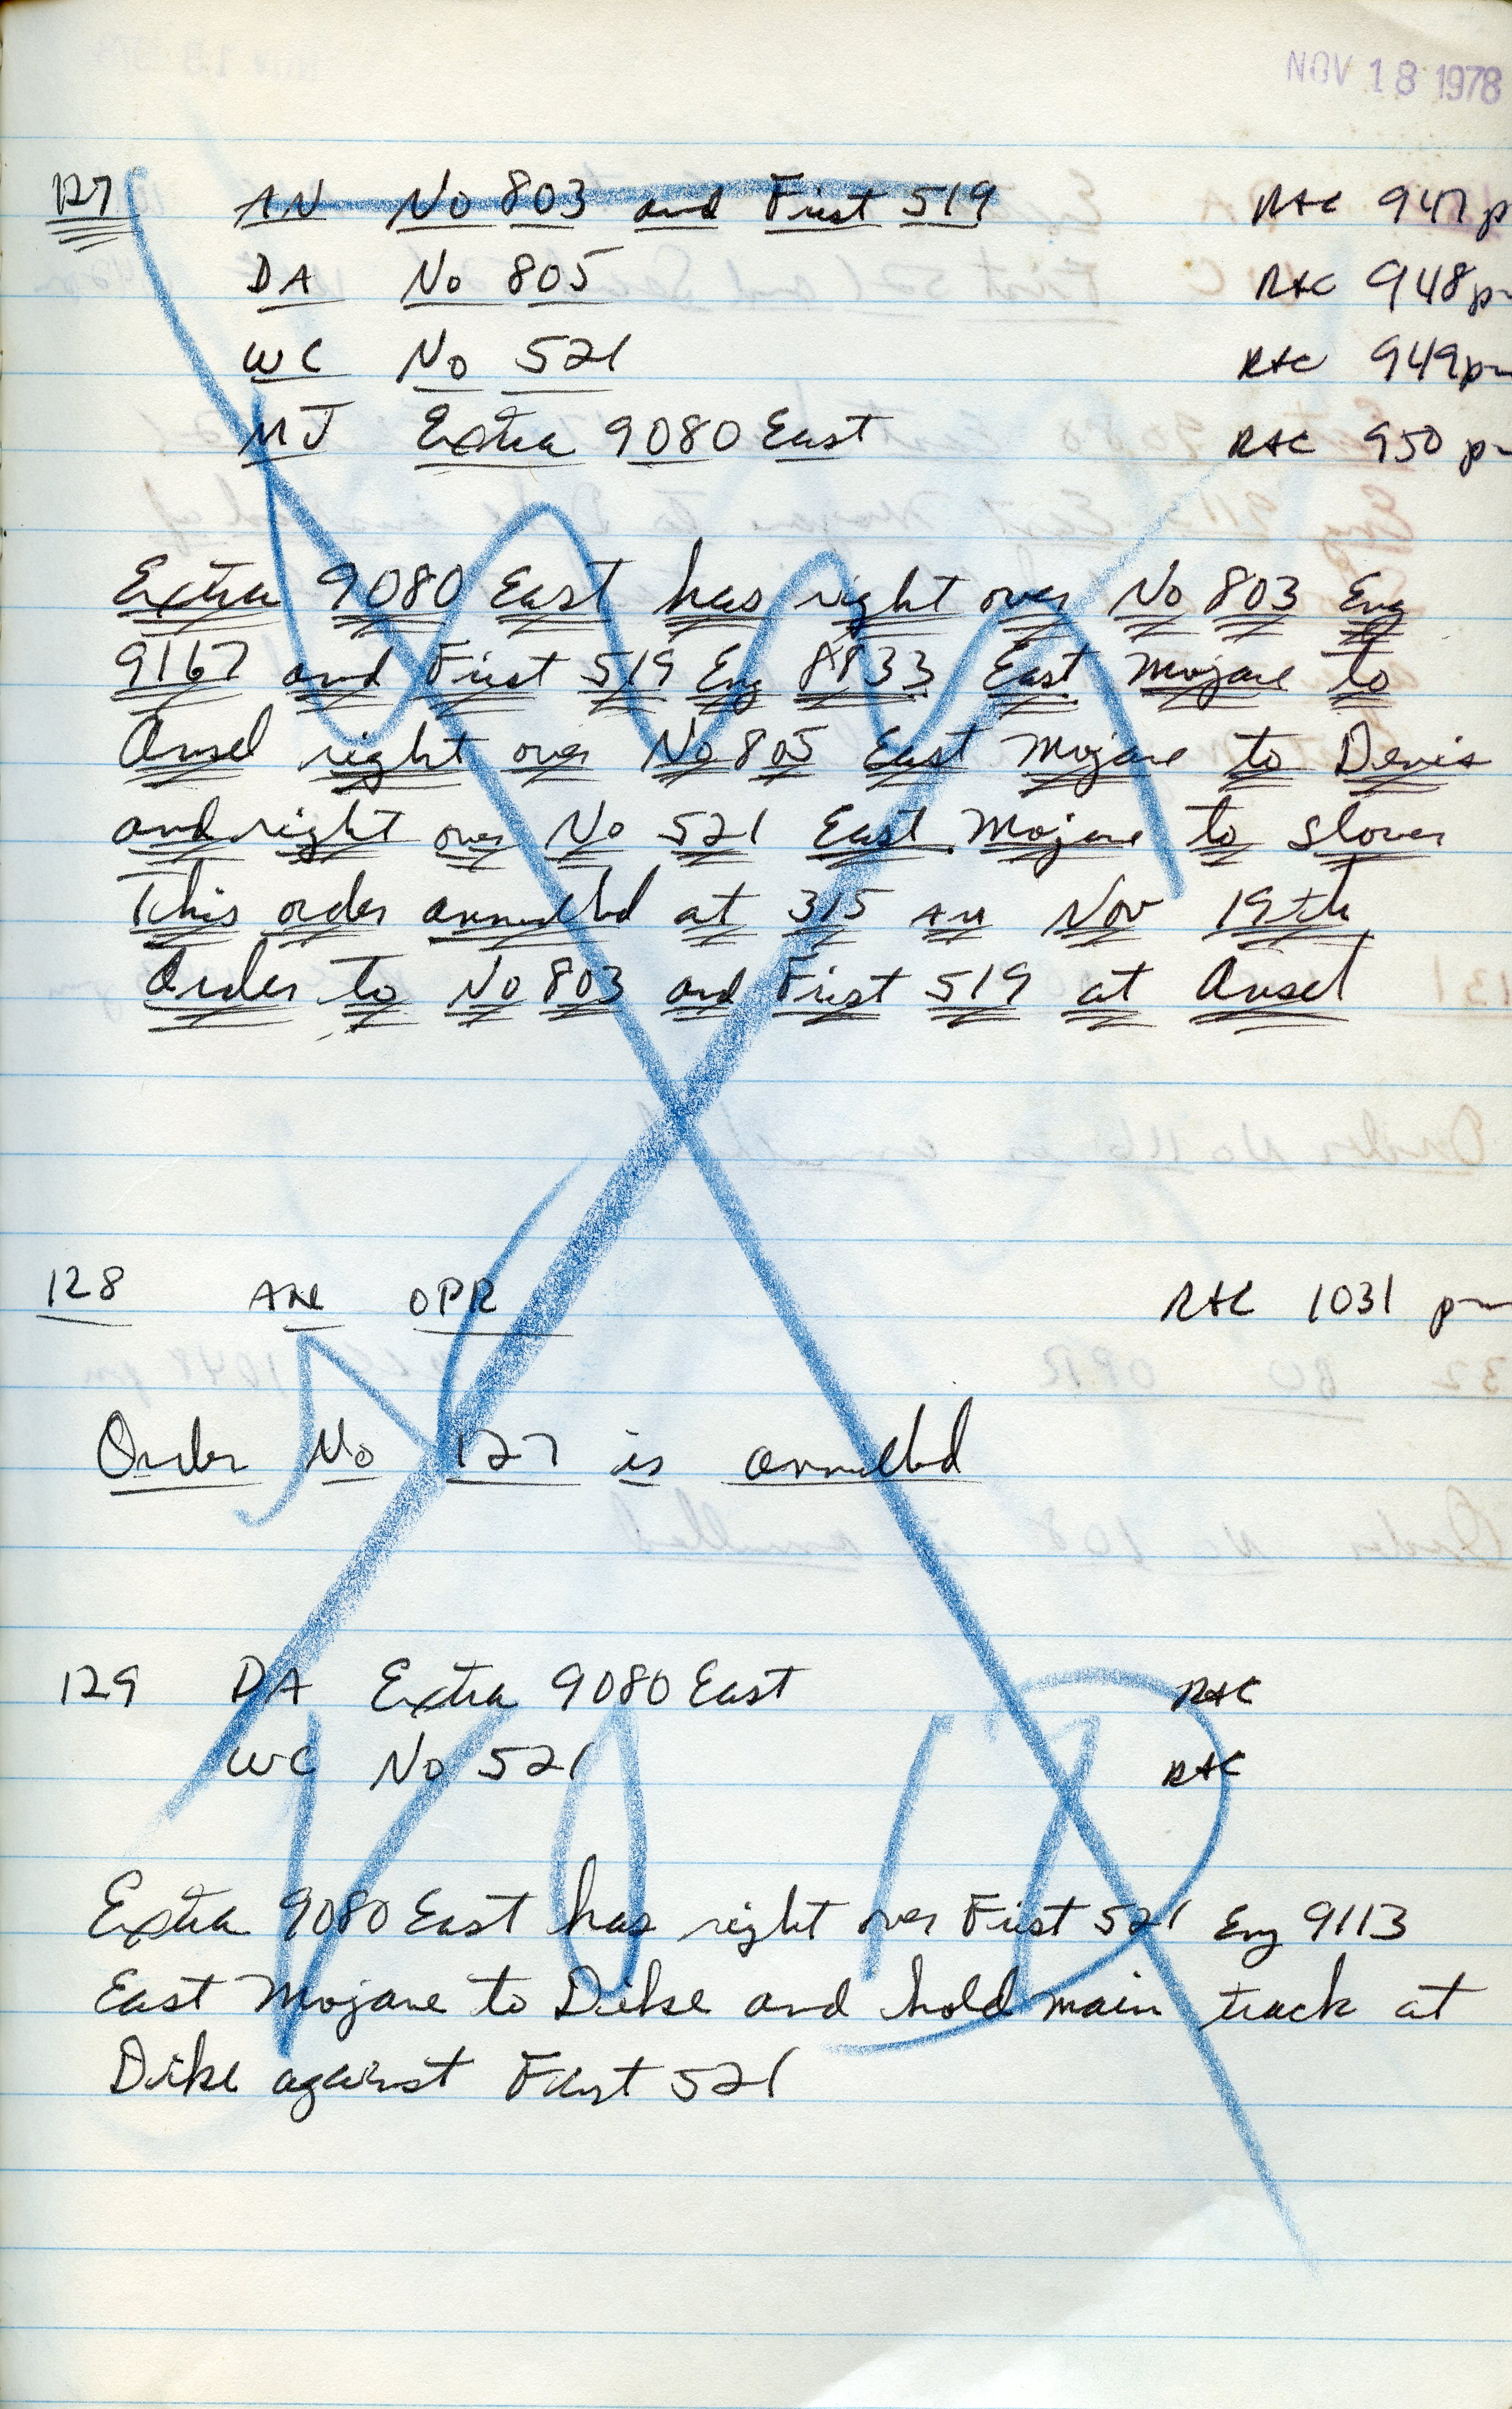 NOV 18 1978
127 AN No 803 and First 519 RAC 947 p
DA No 805 RAC 948 pm
WC No 521 RAC 949 pm
MJ Extra 9080 East RAC 950 pm
Extra 9080 East has right over No 803 Eng
9167 and First 519 Eng 8833 East Mojave to
Ansel right over No 805 East Mojave to Denis
and right over No 521 East Mojave to Slover
This order annulled at 315 AM Nov 19th
Order to No 803 and First 519 at Ansel
128 OPR RAC 1031 pm
Order No 127 is annulled
129 DA Extra 9080 East RAC
WC No 521 RAC
VOID
Extra 9080 East has right over First 521 Eng 9113
East Mojave to Dike and hold main track at
Dike against First 521